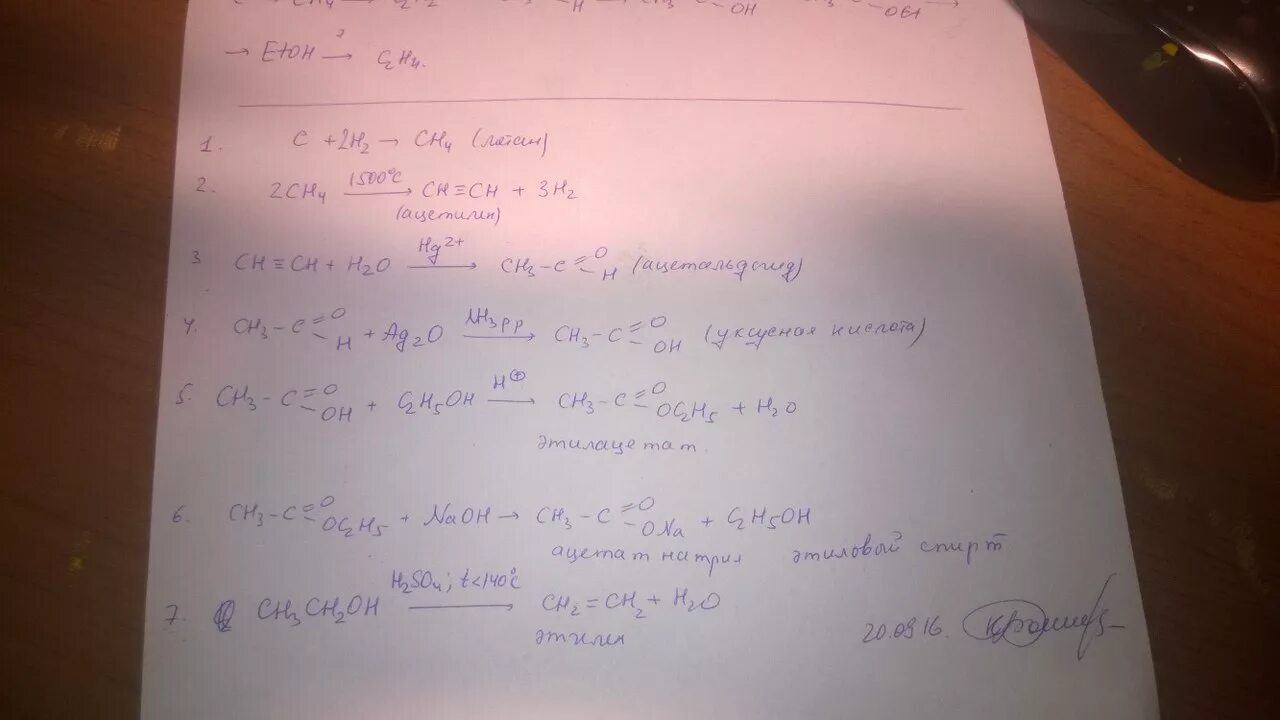 CH₄ → C₂H₂ H → CH₃ OH CH₃ OEt →
→ EtOH → C₂H₄.
1. C + 2H₂ → CH₄ (метан)
2. 2CH₄ 1500°C → CH≡CH + 3H₂
(ацетилен)
3 CH≡CH + H₂O Hg²⁺ → CH₃-C=O H (ацетальдегид)
4. CH₃-C=O H + Ag₂O NH₃ рр → CH₃-C=O OH (уксусная кислота)
5. CH₃-C=O OH + C₂H₅OH H⊕ → CH₃-C=O OC₂H₅ + H₂O
этилацетат.
6. CH₃-C=O OC₂H₅ + NaOH → CH₃-C=O ONa + C₂H₅OH
ацетат натрия этиловый спирт
7. CH₃CH₂OH H₂SO₄; t<140°C → CH₂=CH₂ + H₂O
этилен
20.09.16.